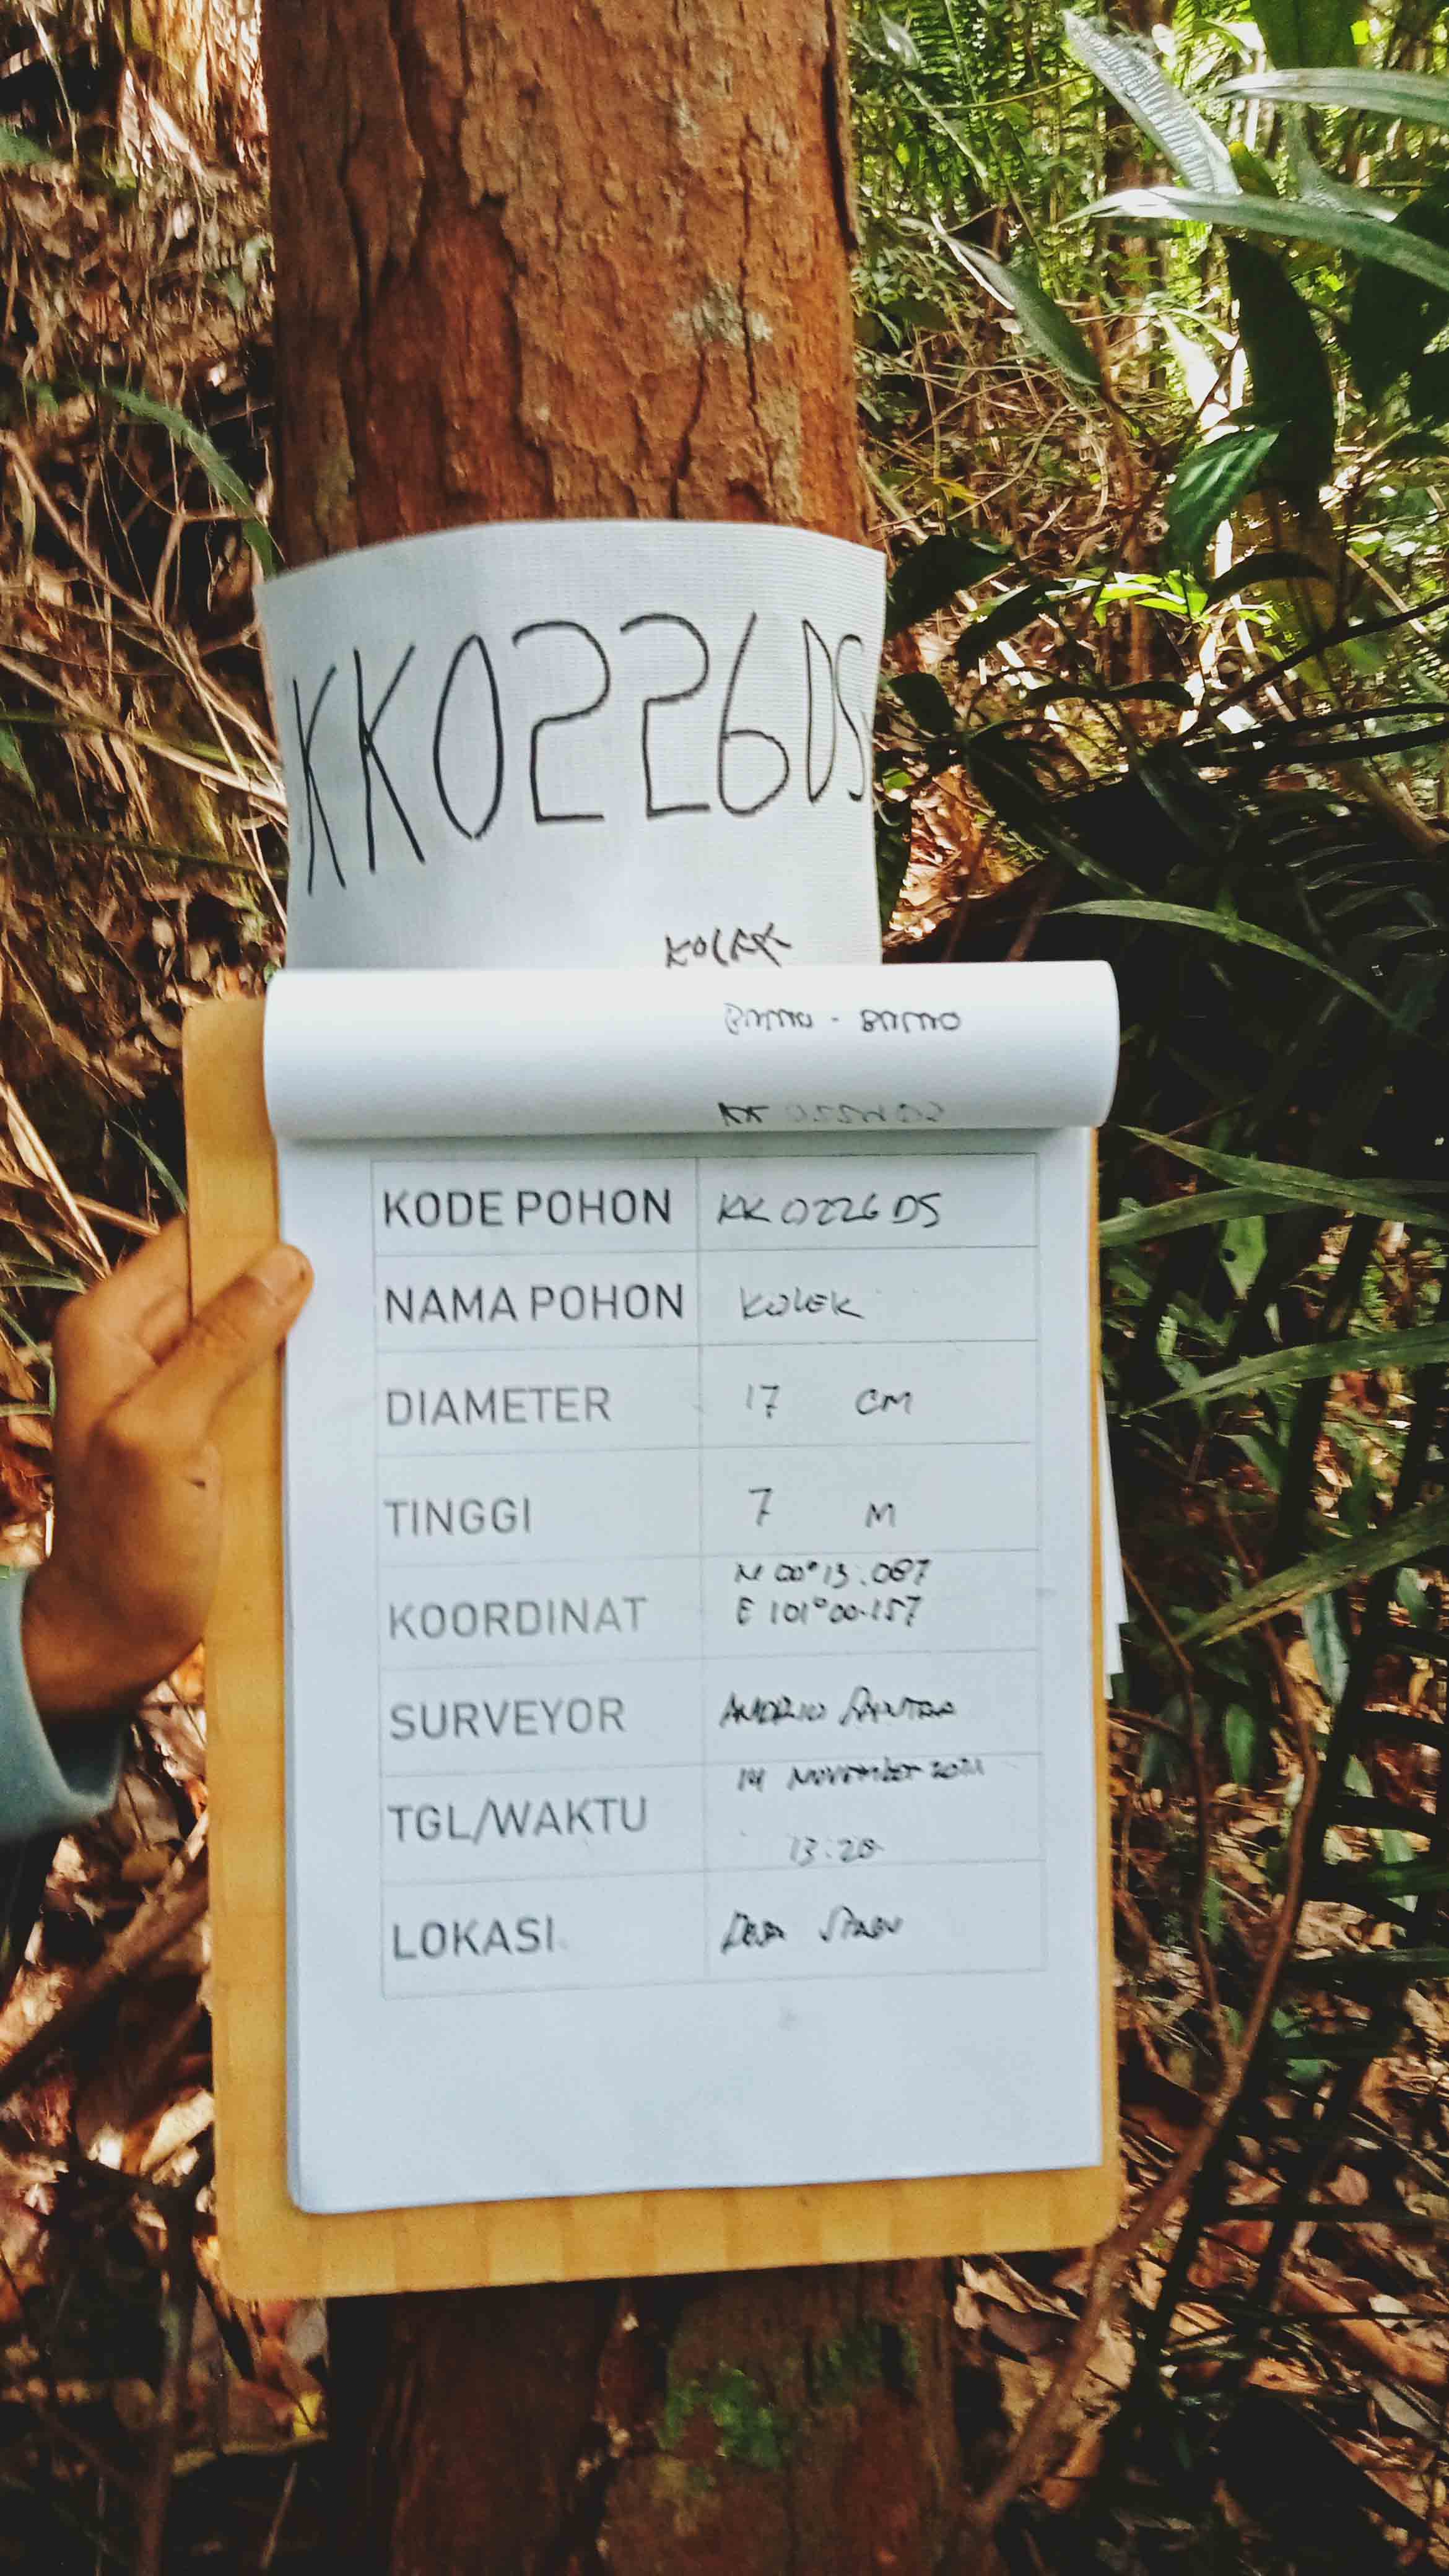 KK0226DS
KOLEK
KODE POHON KK 0226 DS
NAMA POHON KOLEK
DIAMETER 17 CM
TINGGI 7 M
KOORDINAT N 00°13.087
E 101°00.157
SURVEYOR
TGL/WAKTU 14 November 2021
13:28
LOKASI Desa